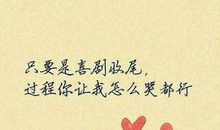 只要是喜剧收尾，
过程你让我怎么哭都行